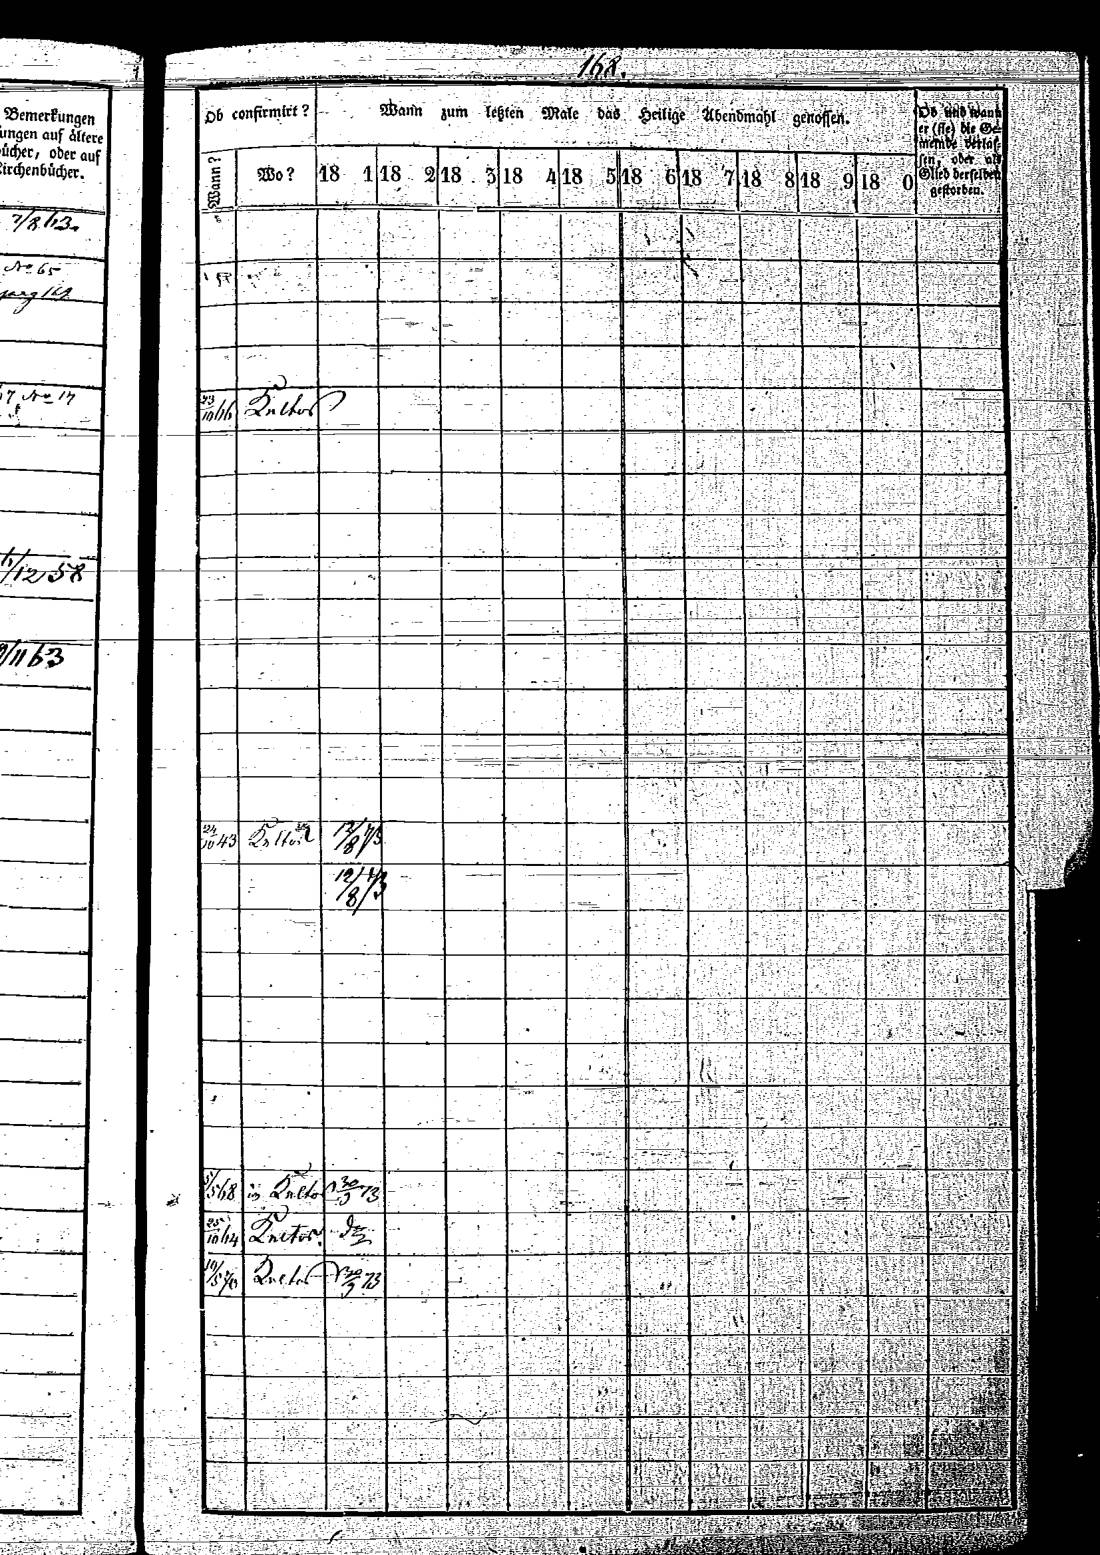 168.
Bemerkungen
ungen auf ältere
bücher, oder auf
Kirchenbücher.
7/8 63.
No 65
17 No 17
/12 58
/11 63
Ob confirmirt?
Wann zum letzten Male das Heilige Abendmahl genossen.
Ob und wann
er (sie) die Ge-
meinde verlas-
sen, oder als
Glied derselben
gestorben.
Wann? Wo? 18 1 18 2 18 3 18 4 18 5 18 6 18 7 18 8 18 9 18 0
23/10 66
24/10 43 12/8 73
12/8 73
5/5 68 in 30/9 73
25/10 64 do
19/5 70 30/9 73